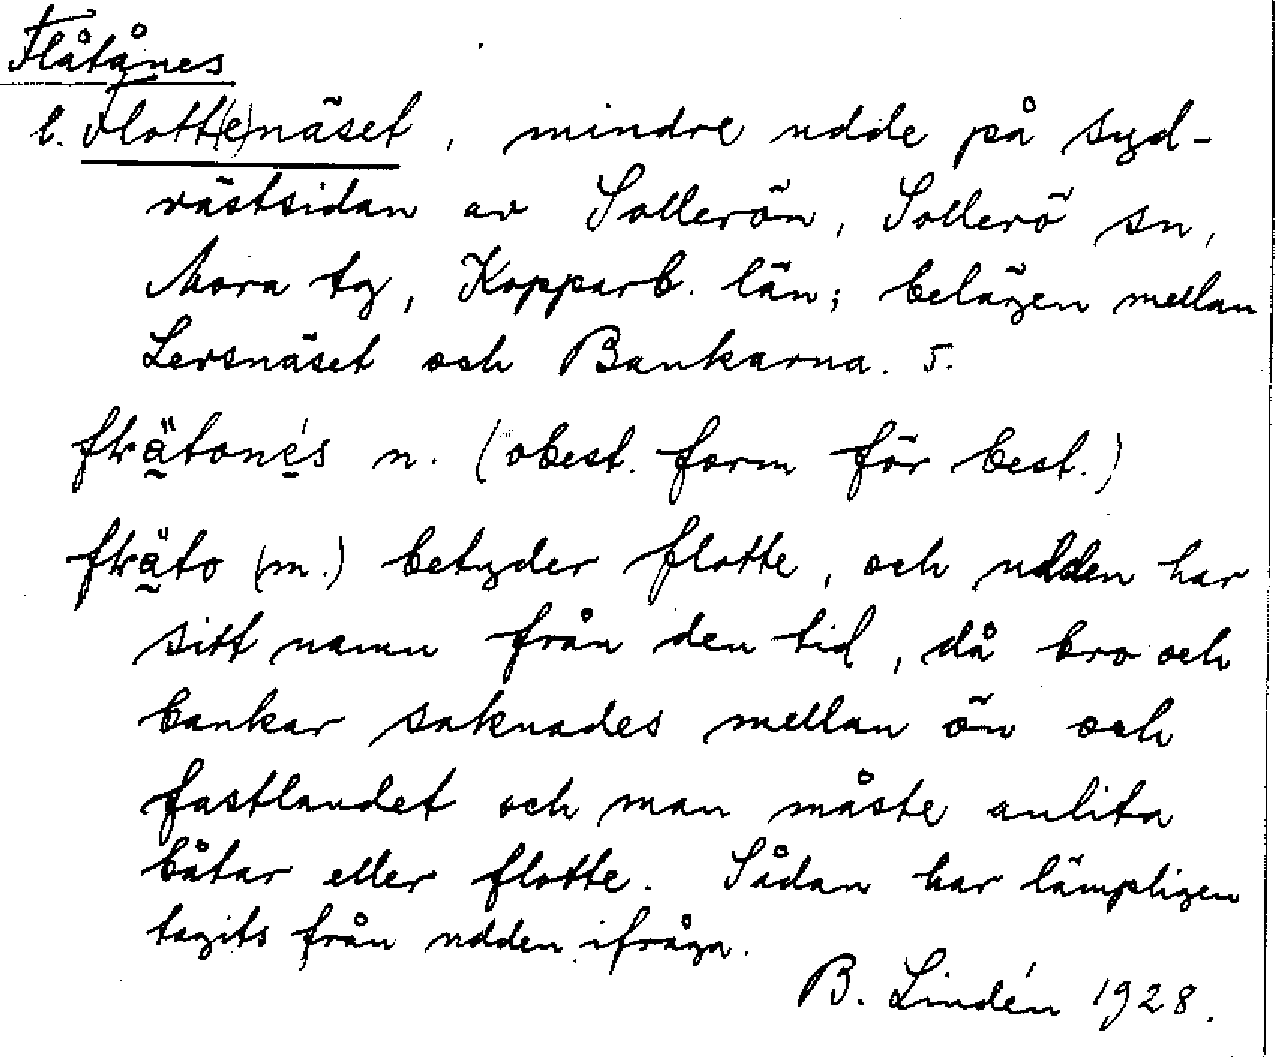 Flåtånes
l. Flott(e)näset, mindre udde på syd-
västsidan av Sollerön, Sollerö sn,
Mora tg, Kopparb. län; belägen mellan
Lersnäset och Bankarna. 5.
n. (obest. form för best.)
(m.) betyder flotte, och udden har
sitt namn från den tid, då bro och
bankar saknades mellan ön och
fastlandet och man måste anlita
båtar eller flotte. Sådan har lämpligen
tagits från udden ifråga.
B. Lindén 1928.